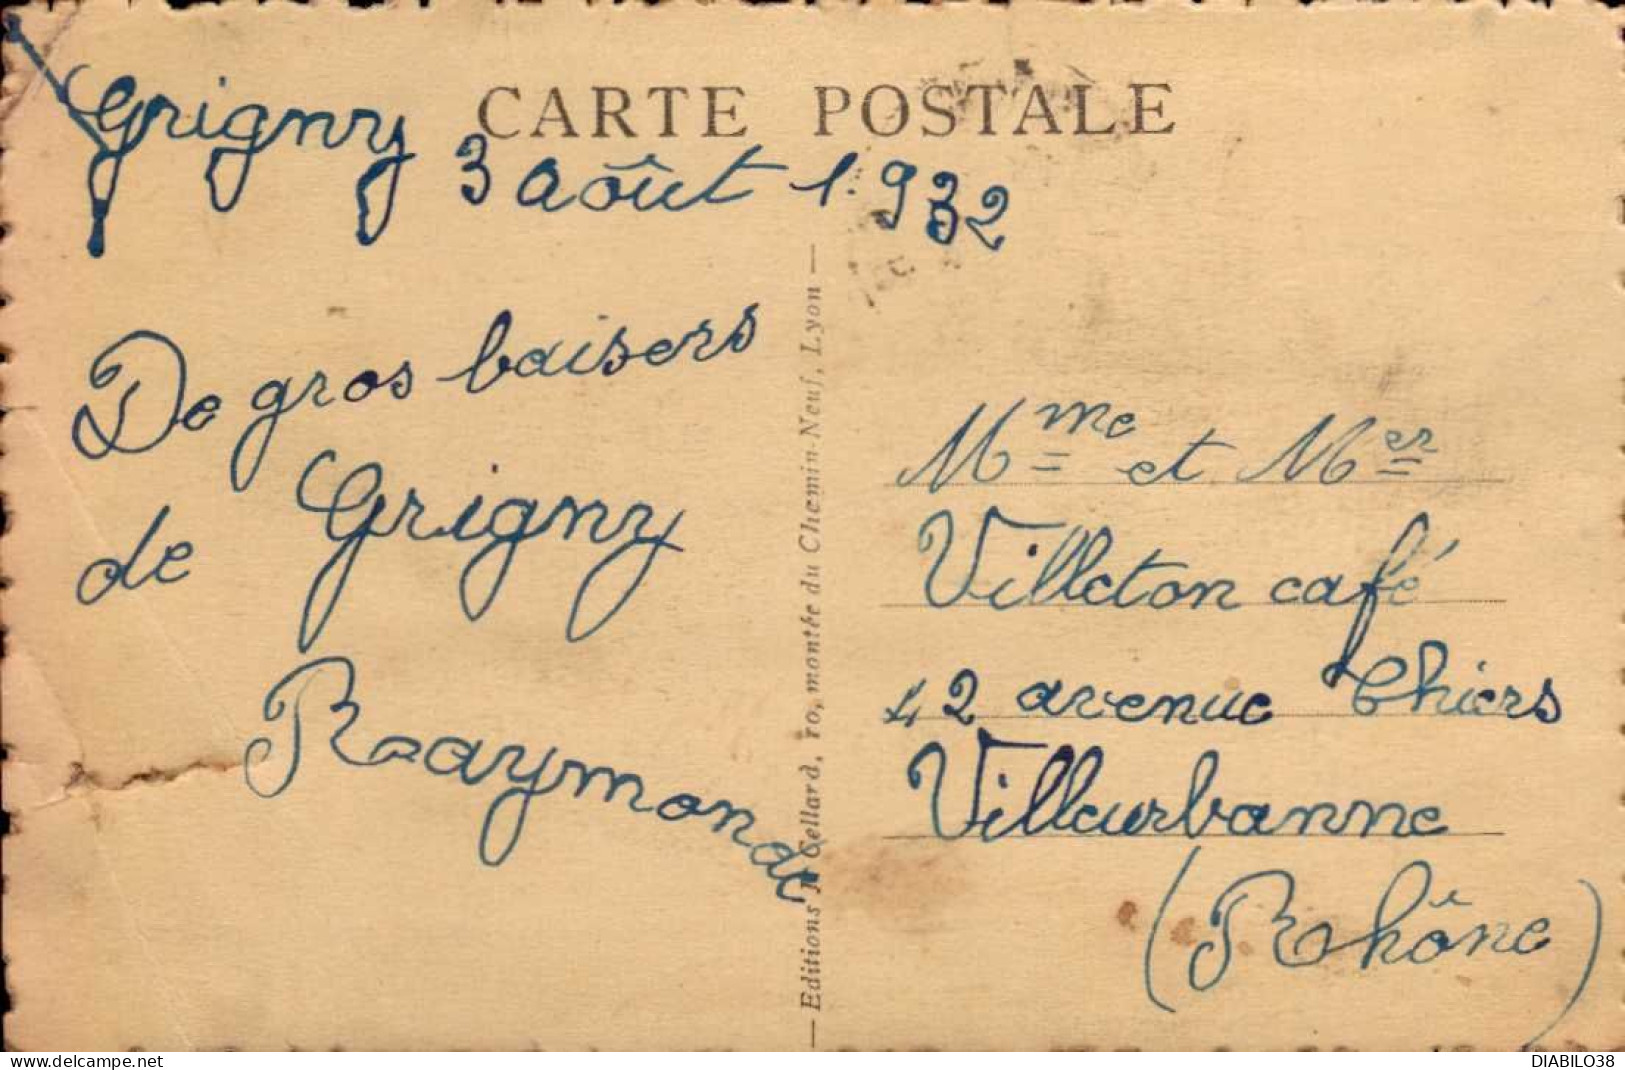 CARTE POSTALE
Grigny 3 août 1.932
De gros baisers
de Grigny
Raymonde
Editions Cellard, 10, montée du Chemin-Neuf, Lyon
Mme et Mer
Villeton café
42 avenue Thiers
Villeurbanne
(Rhône)
www.delcampe.net
DIABILO38